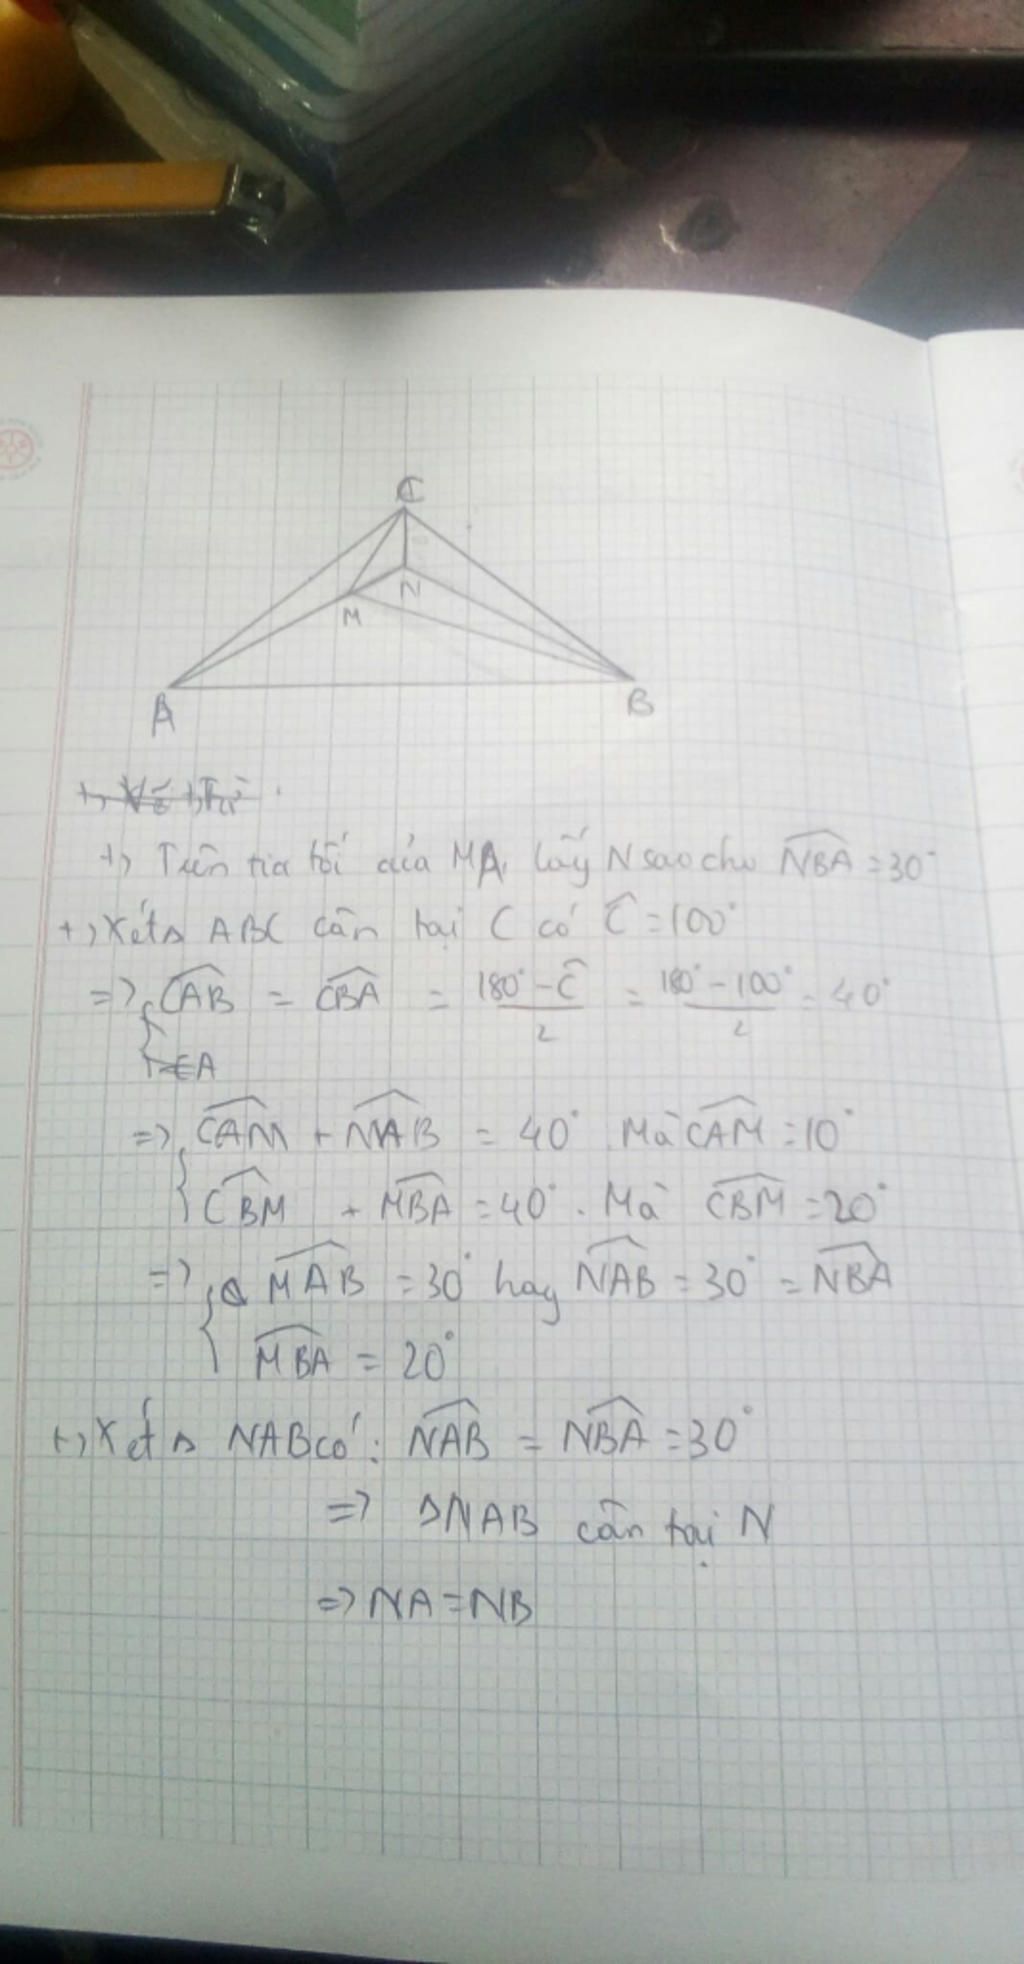 C
N
M
A
B
+, Trên tia đối của MA, lấy N sao cho \widehat{NBA} = 30°
+, Xét Δ ABC cân tại C có \widehat{C} = 100°
=> { \widehat{CAB} = \widehat{CBA} = \frac{180° - \widehat{C}}{2} = \frac{180° - 100°}{2} = 40°
=> { \widehat{CAM} + \widehat{MAB} = 40°. Mà \widehat{CAM} = 10°
\widehat{CBM} + \widehat{MBA} = 40°. Mà \widehat{CBM} = 20°
=> { \widehat{MAB} = 30° hay \widehat{NAB} = 30° = \widehat{NBA}
\widehat{MBA} = 20°
+, Xét Δ NAB có: \widehat{NAB} = \widehat{NBA} = 30°
=> ΔNAB cân tại N
=> NA = NB